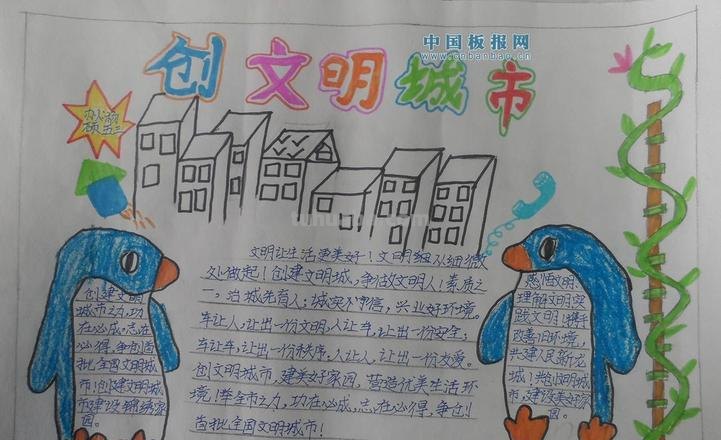 中国板报网
www.cnbanbao.cn
创文明城市
文明让生活更美好！文明细从细微
处做起！创建文明城，争做文明人！素质之
一，治城先育人；诚实不守信，兴业好环境。
车让人，让出一份文明，人让车，让出一份安全，
车让车，让出一份秩序，人让人，让出一份友爱。
创文明城市，建美好家园，营造优美生活环
境！举全市之力，功在必成，志在必得，争创
首批全国文明城市！
创建文明
城市之力，功
在必成，志在
必得，争创首
批全国文明城
市！创建文明城
市，建设锦绣家
园。
感悟文明，
理解文明，实
践文明！携手
改善旧环境，
共建人民新龙
城！共创文明城
市，建设美好家
园。